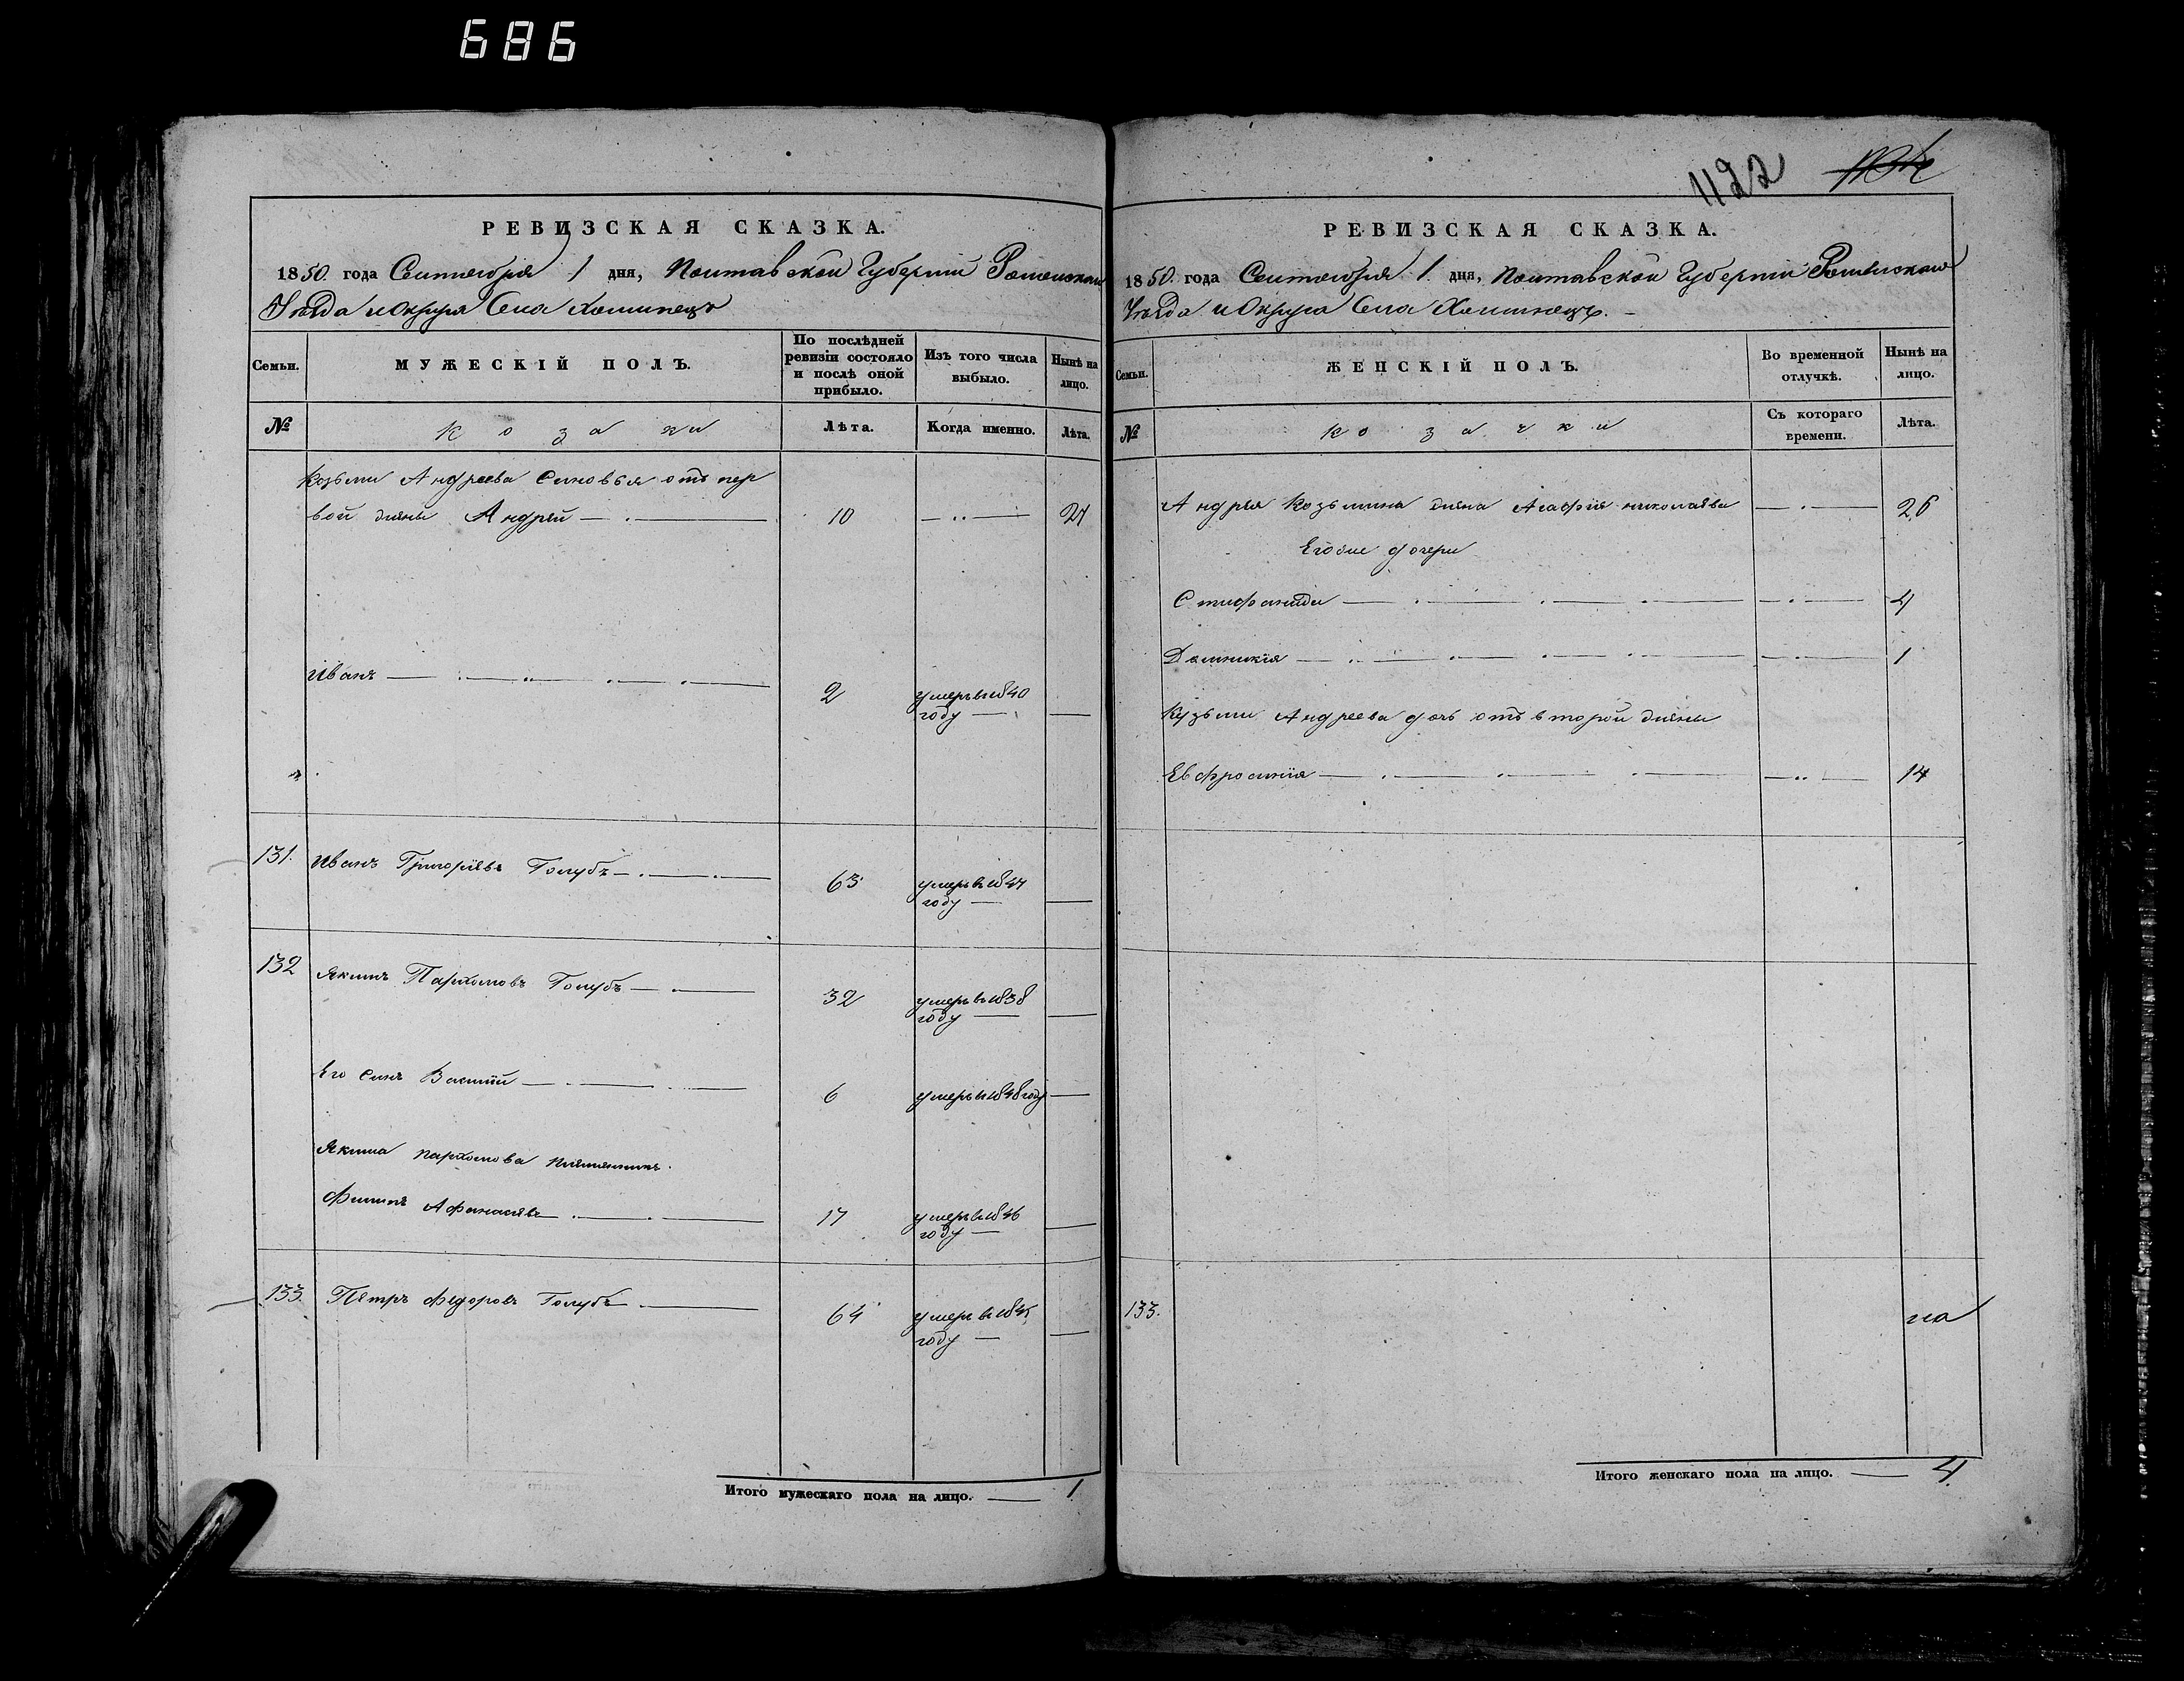 686
1122
РЕВИЗСКАЯ СКАЗКА.
1850. года Сентября 1 дня, Полтавской Губерніи Роменскаго
Уѣзда и Округа Села Хоминецъ
Семьи.
МУЖЕСКІЙ ПОЛЪ.
По послѣдней ревизіи состояло и послѣ оной прибыло.
Изъ того числа выбыло.
Нынѣ на лицо.
№
козаки
Лѣта.
Когда именно.
Лѣта.
Козьмы Андреева Сыновья отъ пер
вой жены Андрей 10 24
Иванъ 2 умеръ въ 1840
году
131. Иванъ Григорьевъ Голубъ 63 умеръ въ 1844
году
132 Якимъ Пархомовъ Голубъ 32 умеръ въ 1838
году
Его Сынъ Василій 6 умеръ въ 1848 году
Якима Пархомова племянникъ
Филипъ Афанасьевъ 17 умеръ въ 1846
году
133. Петръ Федоровъ Голубъ 64 умеръ въ 1845
году
Итого мужескаго пола на лицо. 1
РЕВИЗСКАЯ СКАЗКА.
1850. года Сентября 1. дня, Полтавской Губерніи Роменскаго
Уѣзда и Округа Села Хоминецъ.
Семьи.
ЖЕНСКІЙ ПОЛЪ.
Во временной отлучкѣ.
Нынѣ на лицо.
№
козачки
Съ котораго времени.
Лѣта.
Андрея Козьмина жена Агафія Николаева 26
Его дочери
Стифанида 4
Домникія 1
Кузьмы Андреева дочь отъ второй жены
Евфросинія 14
133. на
Итого женскаго пола на лицо. 4.